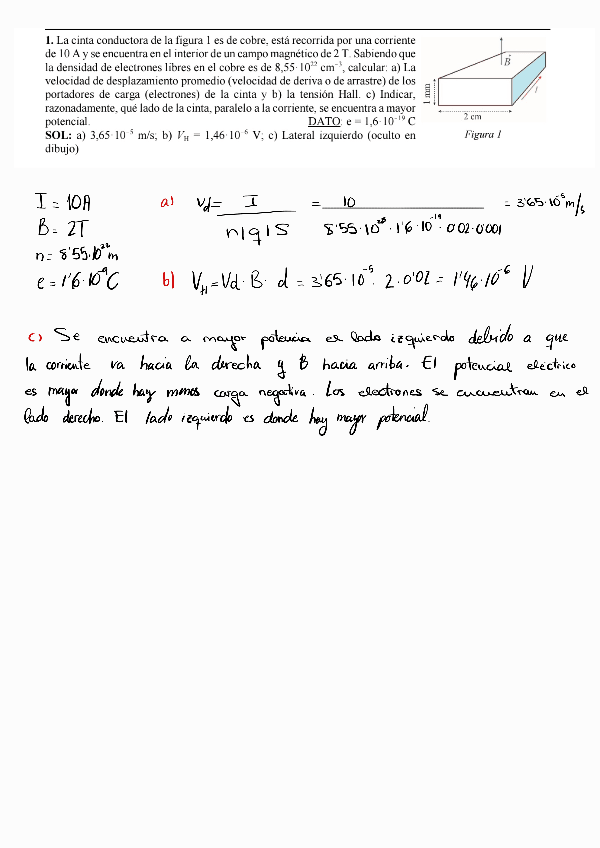 1. La cinta conductora de la figura 1 es de cobre, está recorrida por una corriente
de 10 A y se encuentra en el interior de un campo magnético de 2 T. Sabiendo que
la densidad de electrones libres en el cobre es de 8,55·10²² cm⁻³, calcular: a) La
velocidad de desplazamiento promedio (velocidad de deriva o de arrastre) de los
portadores de carga (electrones) de la cinta y b) la tensión Hall. c) Indicar,
razonadamente, qué lado de la cinta, paralelo a la corriente, se encuentra a mayor
potencial. DATO: e = 1,6·10⁻¹⁹ C
SOL: a) 3,65·10⁻⁵ m/s; b) V_H = 1,46·10⁻⁶ V; c) Lateral izquierdo (oculto en
dibujo)
B
I
1 mm
2 cm
Figura 1
I = 10A
B = 2T
n = 8'55·10²² m
e = 1'6·10⁻¹⁹ C
a) Vd = I / n|q|S = 10 / 8'55·10²⁸·1'6·10⁻¹⁹·0'02·0'001 = 3'65·10⁻⁵ m/s
b) V_H = Vd · B · d = 3'65·10⁻⁵ · 2 · 0'02 = 1'46·10⁻⁶ V
c) Se encuentra a mayor potencia el lado izquierdo debido a que
la corriente va hacia la derecha y B hacia arriba. El potencial eléctrico
es mayor donde hay menos carga negativa. Los electrones se encuentran en el
lado derecho. El lado izquierdo es donde hay mayor potencial.